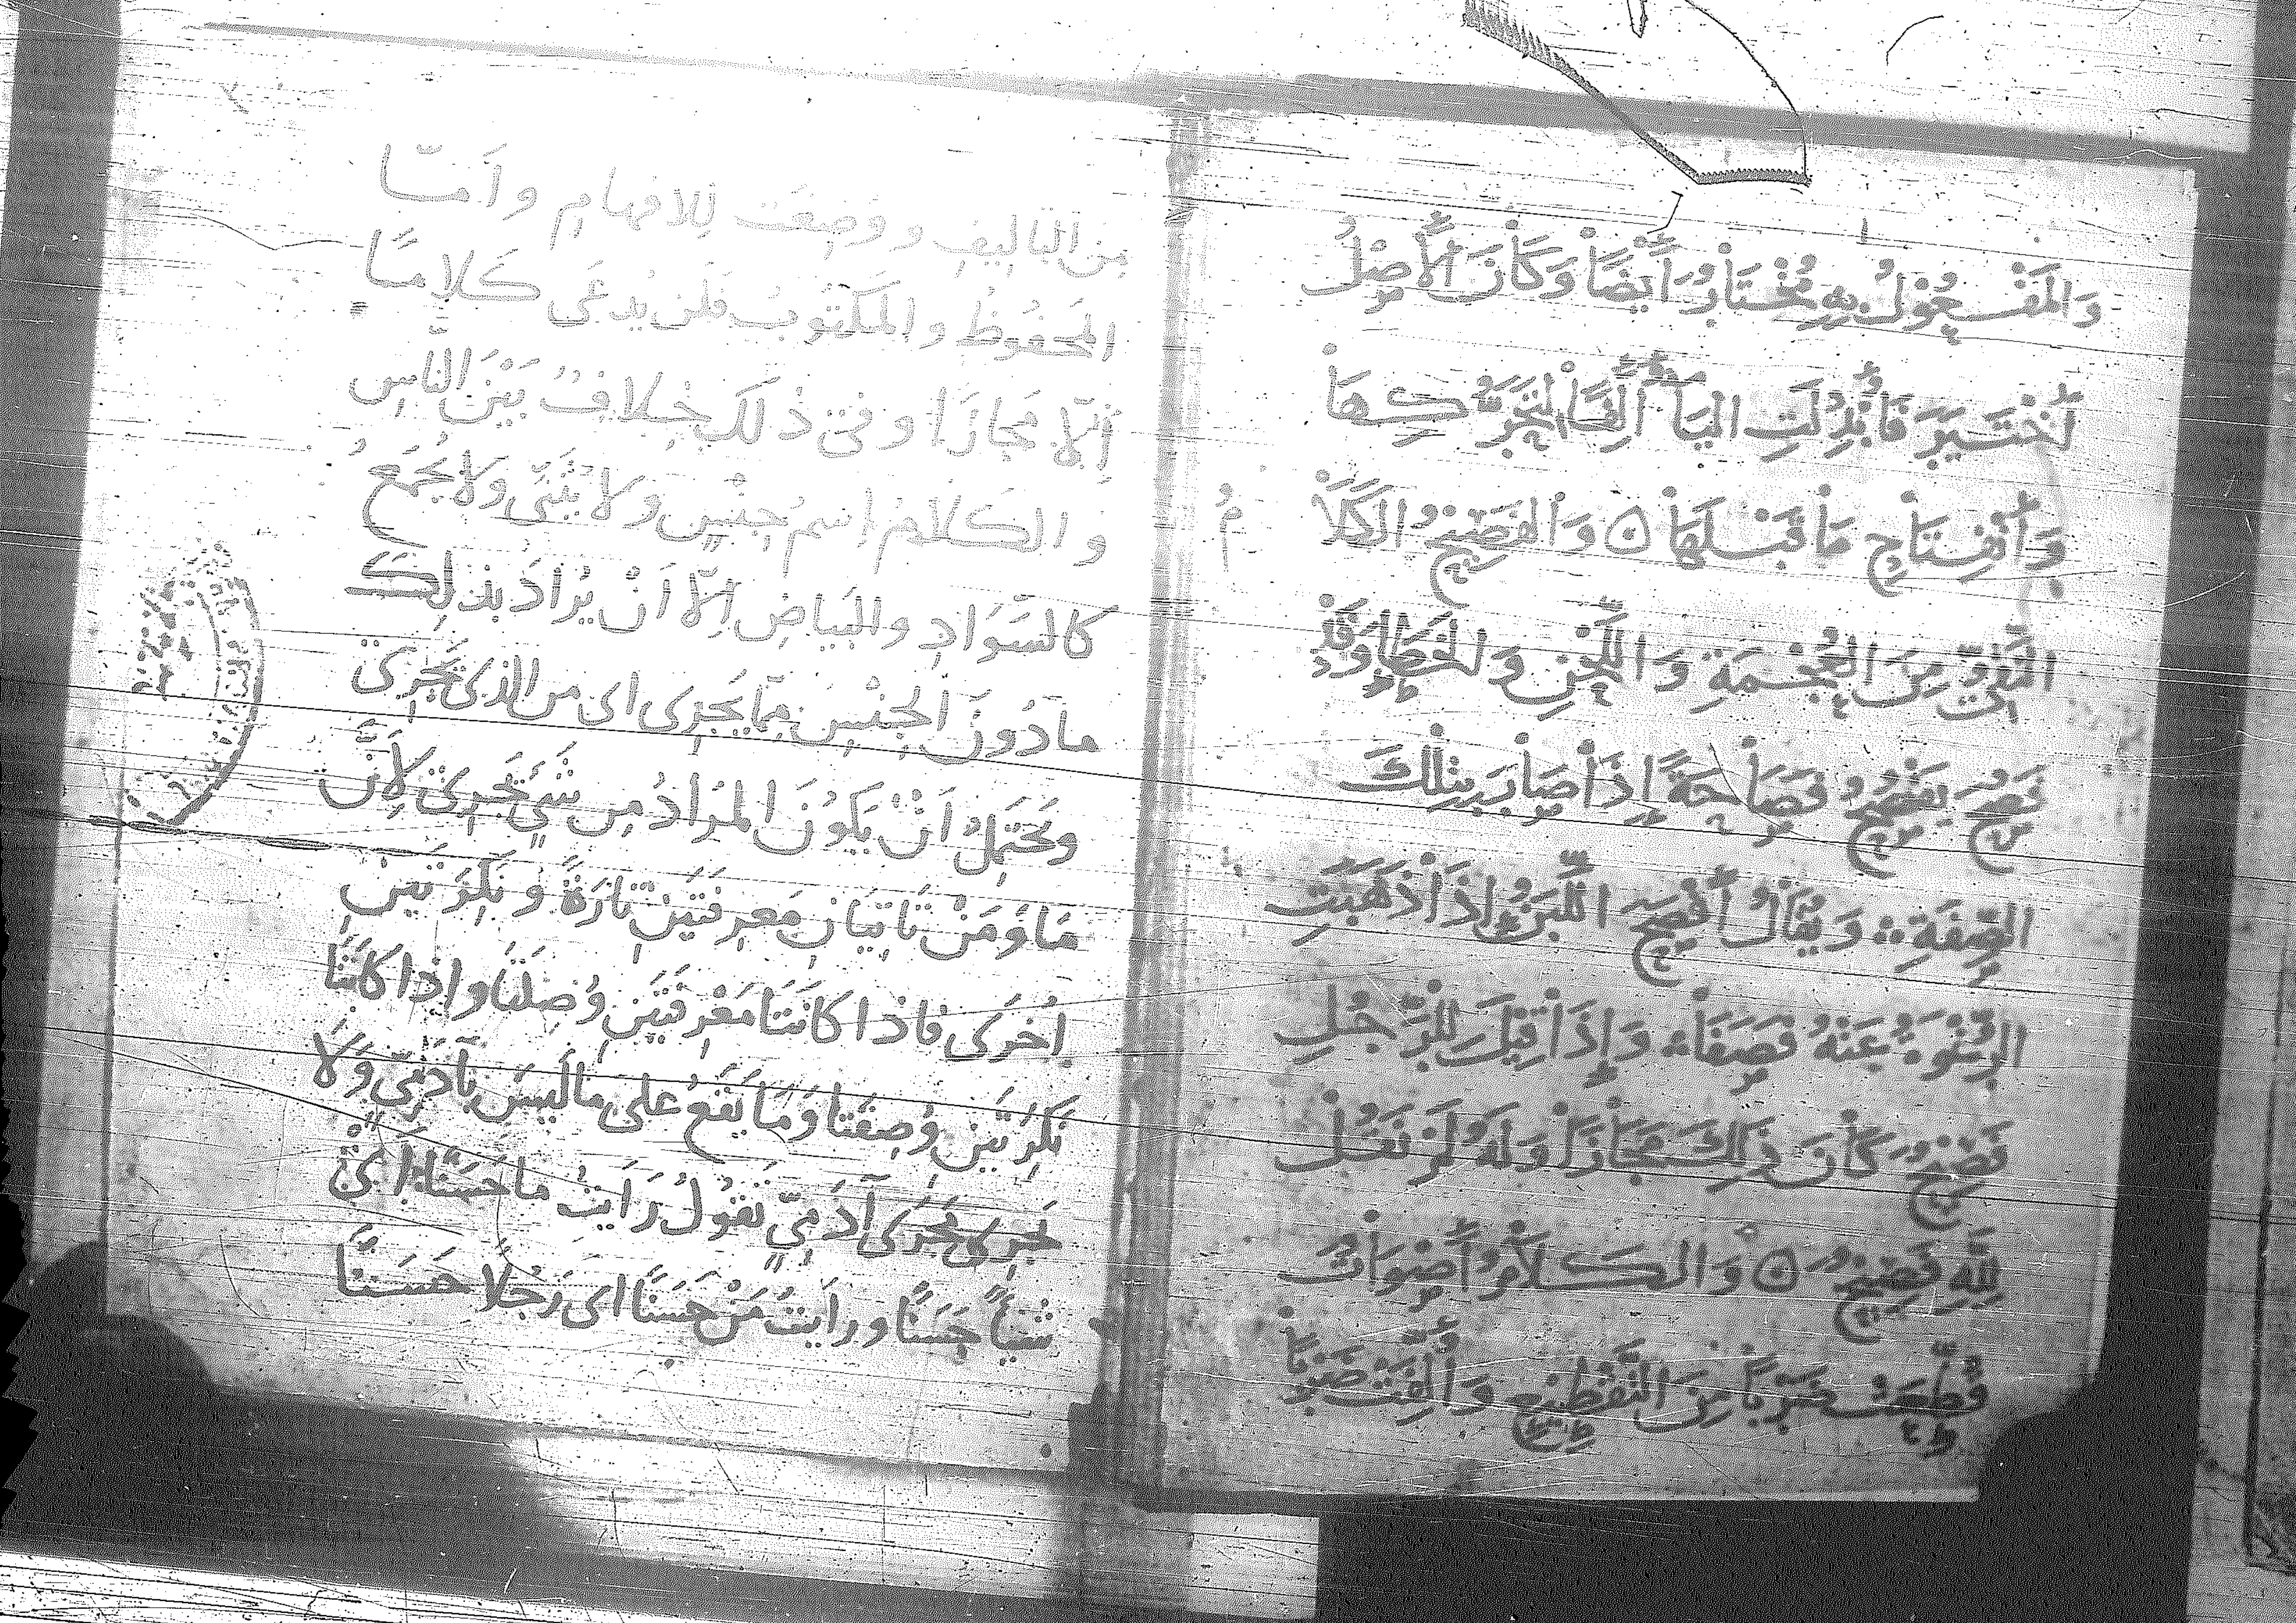 وَالمَفْعُوْلُ بِهِ مُخْتَارٌ أَيْضًا وَكَانَ الأَصْلُ
اُخْتُيِرَ فَأُبْدِلَتِ اليَاءُ أَلِفًا لِتَحَرُّكِهَا
وَانْفِتَاحِ مَا قَبْلَهَا ۝ وَالفَصِيْحُ الكَلَامُ
النَّقِيُّ مِنَ العُجْمَةِ وَاللَّحْنِ وَالخَطَإِ وَقَدْ
فَصُحَ يَفْصُحُ فَصَاحَةً إِذَا صَارَ بِتِلْكَ
الصِّفَةِ وَيُقَالُ أَفْصَحَ اللَّبَنُ إِذَا ذَهَبَتِ
الرِّغْوَةُ عَنْهُ فَصَفَا وَإِذَا قِيْلَ لِلرَّجُلِ
فَصِيْحٌ كَانَ ذَلِكَ مَجَازًا وَلَمْ نَقُلْ
لِلّهِ فَصِيْحٌ ۝ وَالكَلَامُ أَصْوَاتٌ
قُطِعَتْ ضَرْبًا مِنَ التَّقْطِيْعِ وَأُلِّفَتْ ضَرْبًا
مِنَ التَّالِيفِ وَوُضِعَت لِلافهَامِ وَاَمَّا
المَحفُوظُ وَالمَكتُوبُ فَلَن يُدعَى كَلَامًا
اِلّا مَجَازًا وَفي ذلكَ خِلافٌ بَيْنَ النَّاسِ
وَالكَلامُ اِسمُ جِنْسٍ وَلا يُثَنّى وَلا يُجمَعُ
كالسَّوَادِ والبَيَاضِ اِلّا اَنْ يُرَادَ بِذلِكَ
مَا دُونَ الجِنْسِ مِمّا يَجرِى اى من الذى يَجرِى
وَيَحتَمِلُ اَنْ يَكُونَ المُرَادُ مِن شَيءٍ يَجرِى لِأَنَّ
مَا وَمَنْ تَاتِيَانِ مَعرِفَتَيْنِ تَارَةً وَنَكِرَتَيْنِ
اُخرَى فاذا كَانَتَا مَعْرِفَتَيْنِ وُصِلَتَا وَاِذَا كَانَتَا
نَكِرَتَيْنِ وُصِفَتَا وَمَا يَقَعُ عَلى مَا لَيسَ بِآدَمِيٍّ وَلَا
يَجرِى مَجرَى آدَمِيٍّ تَقُولُ رَاَيتُ ما حَسَنًا اَىْ
شَيأً حَسَنًا وَرَاَيتُ مَنْ حَسَنًا اى رَجُلًا حَسَنًا